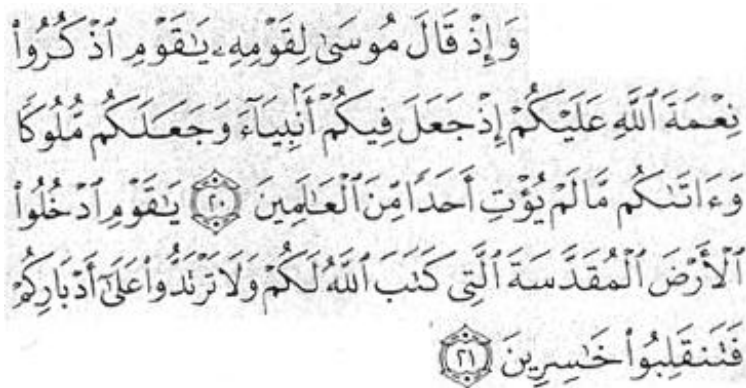 وَإِذْ قَالَ مُوسَىٰ لِقَوْمِهِۦ يَـٰقَوْمِ ٱذْكُرُوا۟
نِعْمَةَ ٱللَّهِ عَلَيْكُمْ إِذْ جَعَلَ فِيكُمْ أَنۢبِيَآءَ وَجَعَلَكُم مُّلُوكًا
وَءَاتَىٰكُم مَّا لَمْ يُؤْتِ أَحَدًا مِّنَ ٱلْعَـٰلَمِينَ ٢٠ يَـٰقَوْمِ ٱدْخُلُوا۟
ٱلْأَرْضَ ٱلْمُقَدَّسَةَ ٱلَّتِى كَتَبَ ٱللَّهُ لَكُمْ وَلَا تَرْتَدُّوا۟ عَلَىٰٓ أَدْبَارِكُمْ
فَتَنقَلِبُوا۟ خَـٰسِرِينَ ٢١